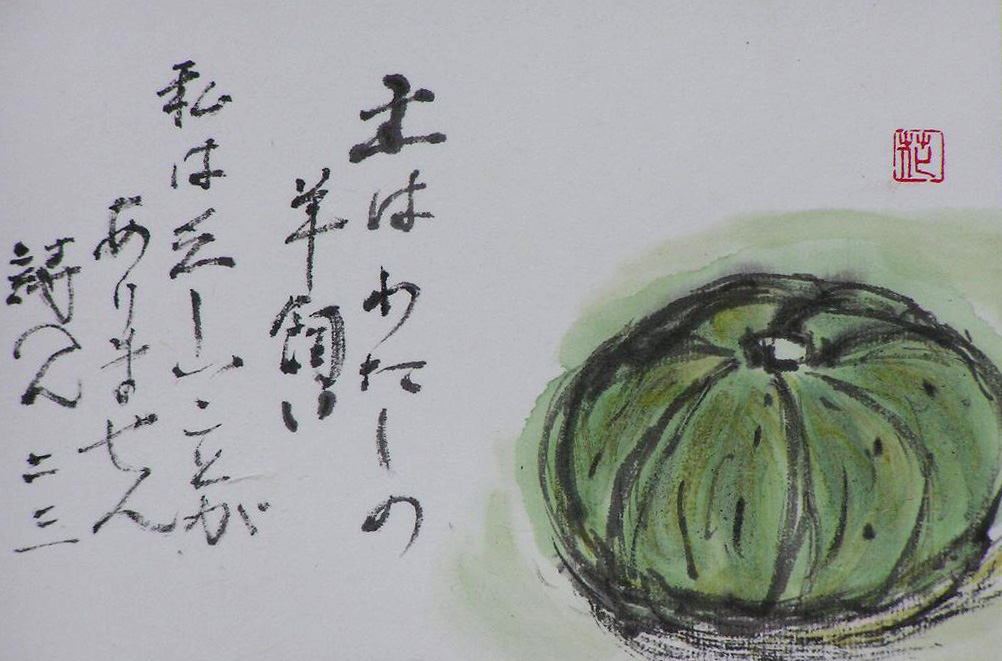 主はわたしの
羊飼い
私は乏しいことが
ありません
詩へん 二三